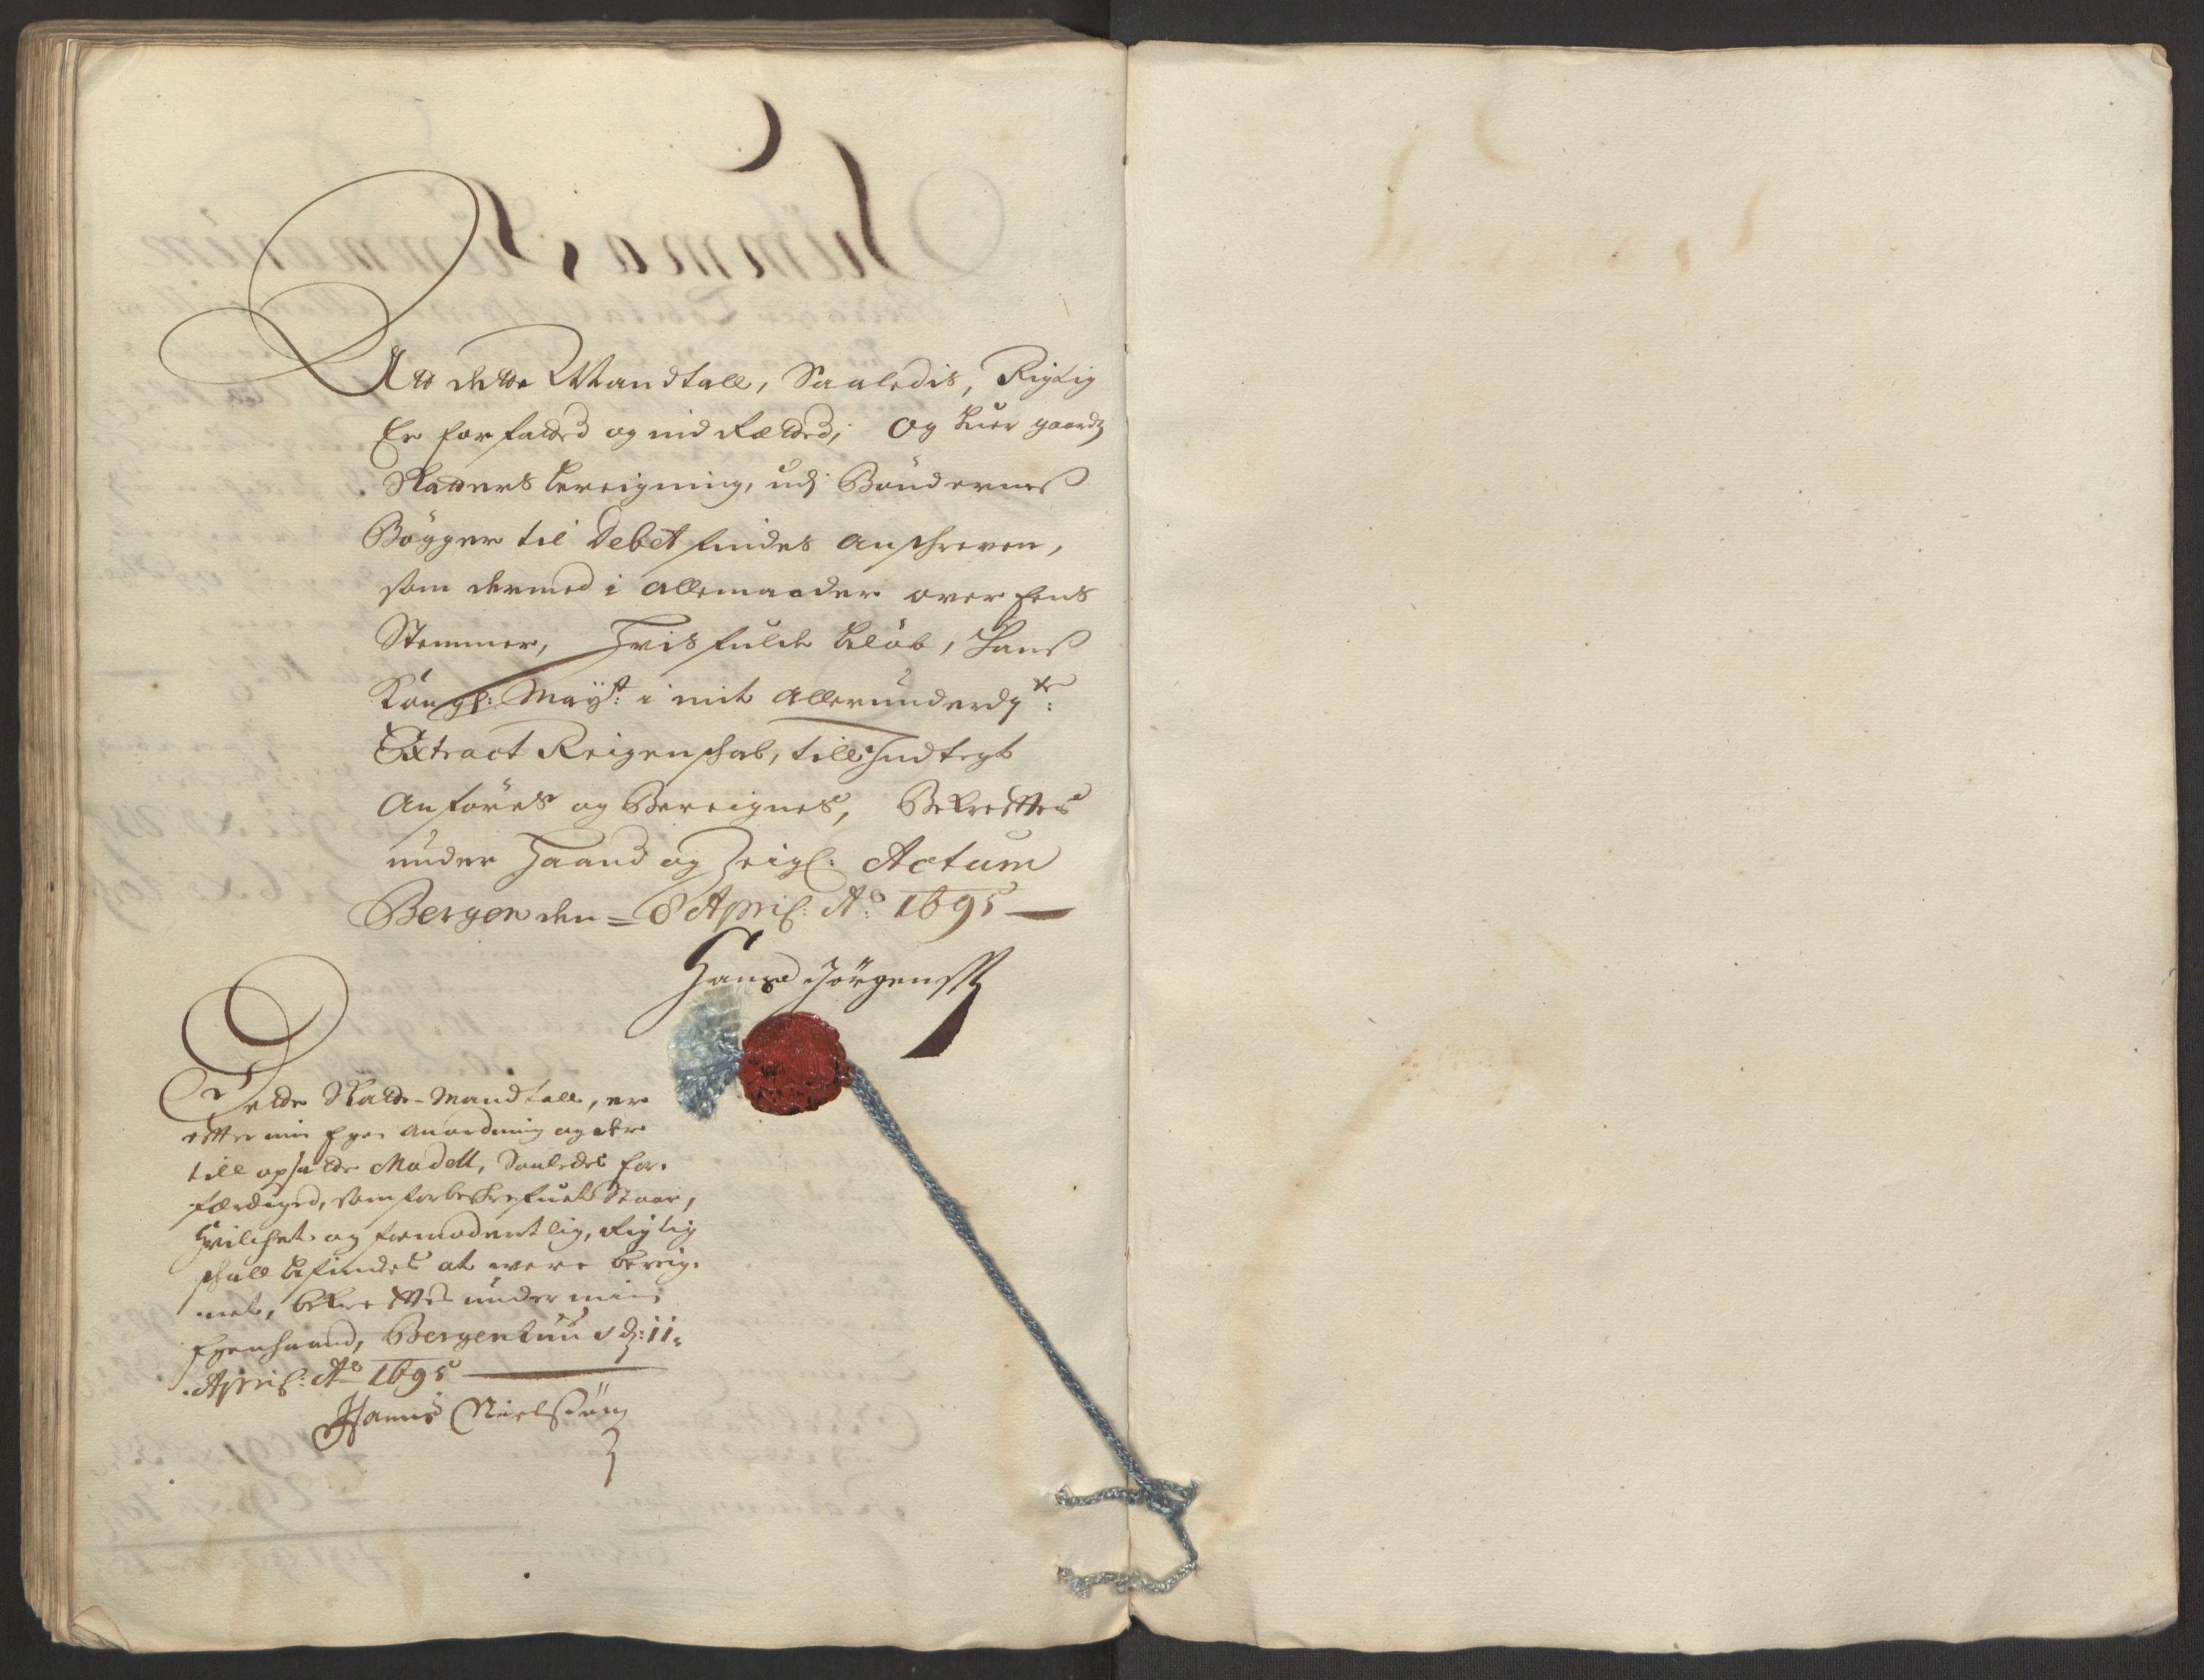 Att dette Mandtall, Saaledis, Rigtig
Er forfatted og indretted, Og huer gaards
Skatters bereigning, udj Bøndernes
Bøgger til Debet findes anschreven,
som dermed i allemaader over Eens
Stemmer, Hvis fulde beløb, Hans
Kongl: Mayt: i mit allerunderdste:
Extract Reigenschab, till Indtegt
Anføres og Bereignes, Bekrefftes
under Haand og Zeigl: Actum
Bergen den = 8 April: Ao: 1695
Hans Jørgens
Dette Skatte-Mandtall, er
effter min Egen anordning og der
till opsatte Modell, Saaledes for-
færdiged, som forbeskrefuet Staar,
Hvilchet og formodentlig, Rigtig
schall befindes at were bereig-
net, bekrefftes under min
Egenhaand, Bergenhuus d: 11.
April: Ao 1695
Hanns Nielssøn